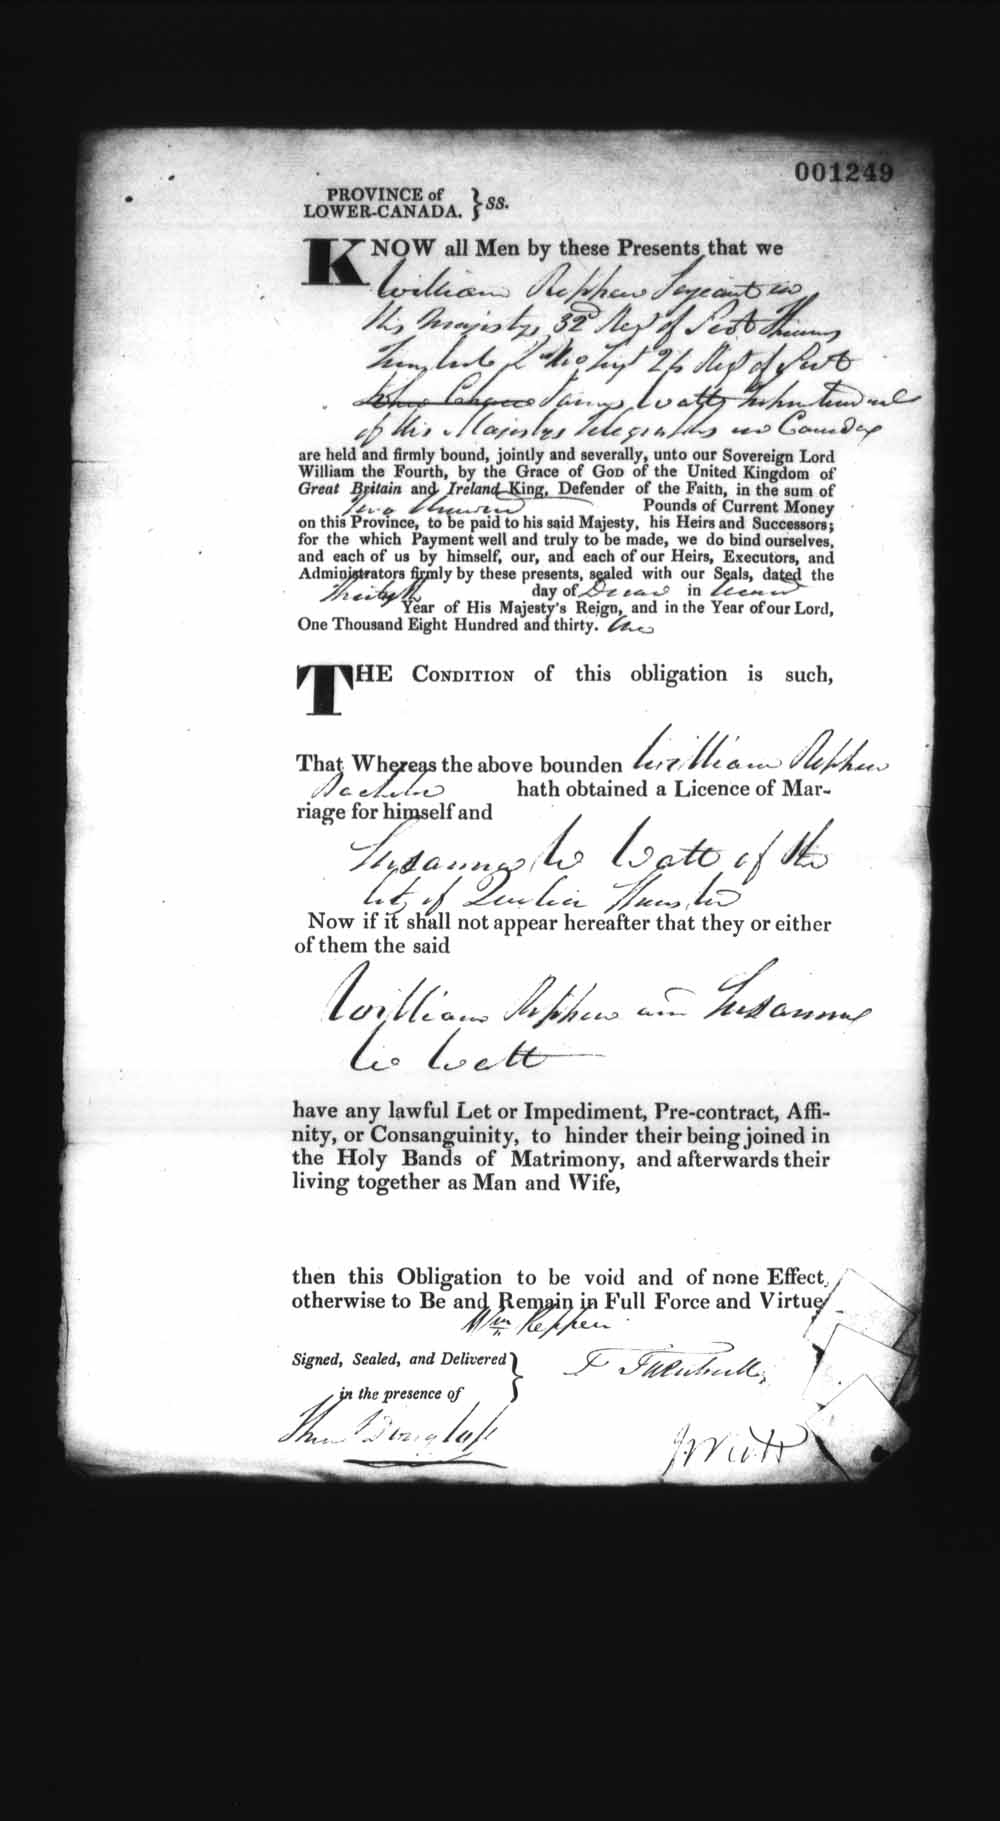 001249
PROVINCE of
LOWER-CANADA. } ss.
KNOW all Men by these Presents that we
William Rephen Serjeant in
His Majestys 32d Regt of Foot Thomas
Qr Mr Serjt 24 Regt of Foot
James Watt
of His Majestys Telegraphs in Canada
are held and firmly bound, jointly and severally, unto our Sovereign Lord
William the Fourth, by the Grace of GOD of the United Kingdom of
Great Britain and Ireland King, Defender of the Faith, in the sum of
Two Hundred Pounds of Current Money
on this Province, to be paid to his said Majesty, his Heirs and Successors;
for the which Payment well and truly to be made, we do bind ourselves,
and each of us by himself, our, and each of our Heirs, Executors, and
Administrators firmly by these presents, sealed with our Seals, dated the
day of in Second
Year of His Majesty's Reign, and in the Year of our Lord,
One Thousand Eight Hundred and thirty. One
THE CONDITION of this obligation is such,
That Whereas the above bounden William Rephen
Bachelor hath obtained a Licence of Mar-
riage for himself and
Susanna W Watt of the
City of Quebec Spinster
Now if it shall not appear hereafter that they or either
of them the said
William Rephen and Susanna
W Watt
have any lawful Let or Impediment, Pre-contract, Affi-
nity, or Consanguinity, to hinder their being joined in
the Holy Bands of Matrimony, and afterwards their
living together as Man and Wife,
then this Obligation to be void and of none Effect,
otherwise to Be and Remain in Full Force and Virtue
Wm Reppen
Signed, Sealed, and Delivered }
T Turnbull
in the presence of
Thos Douglass
J Watt